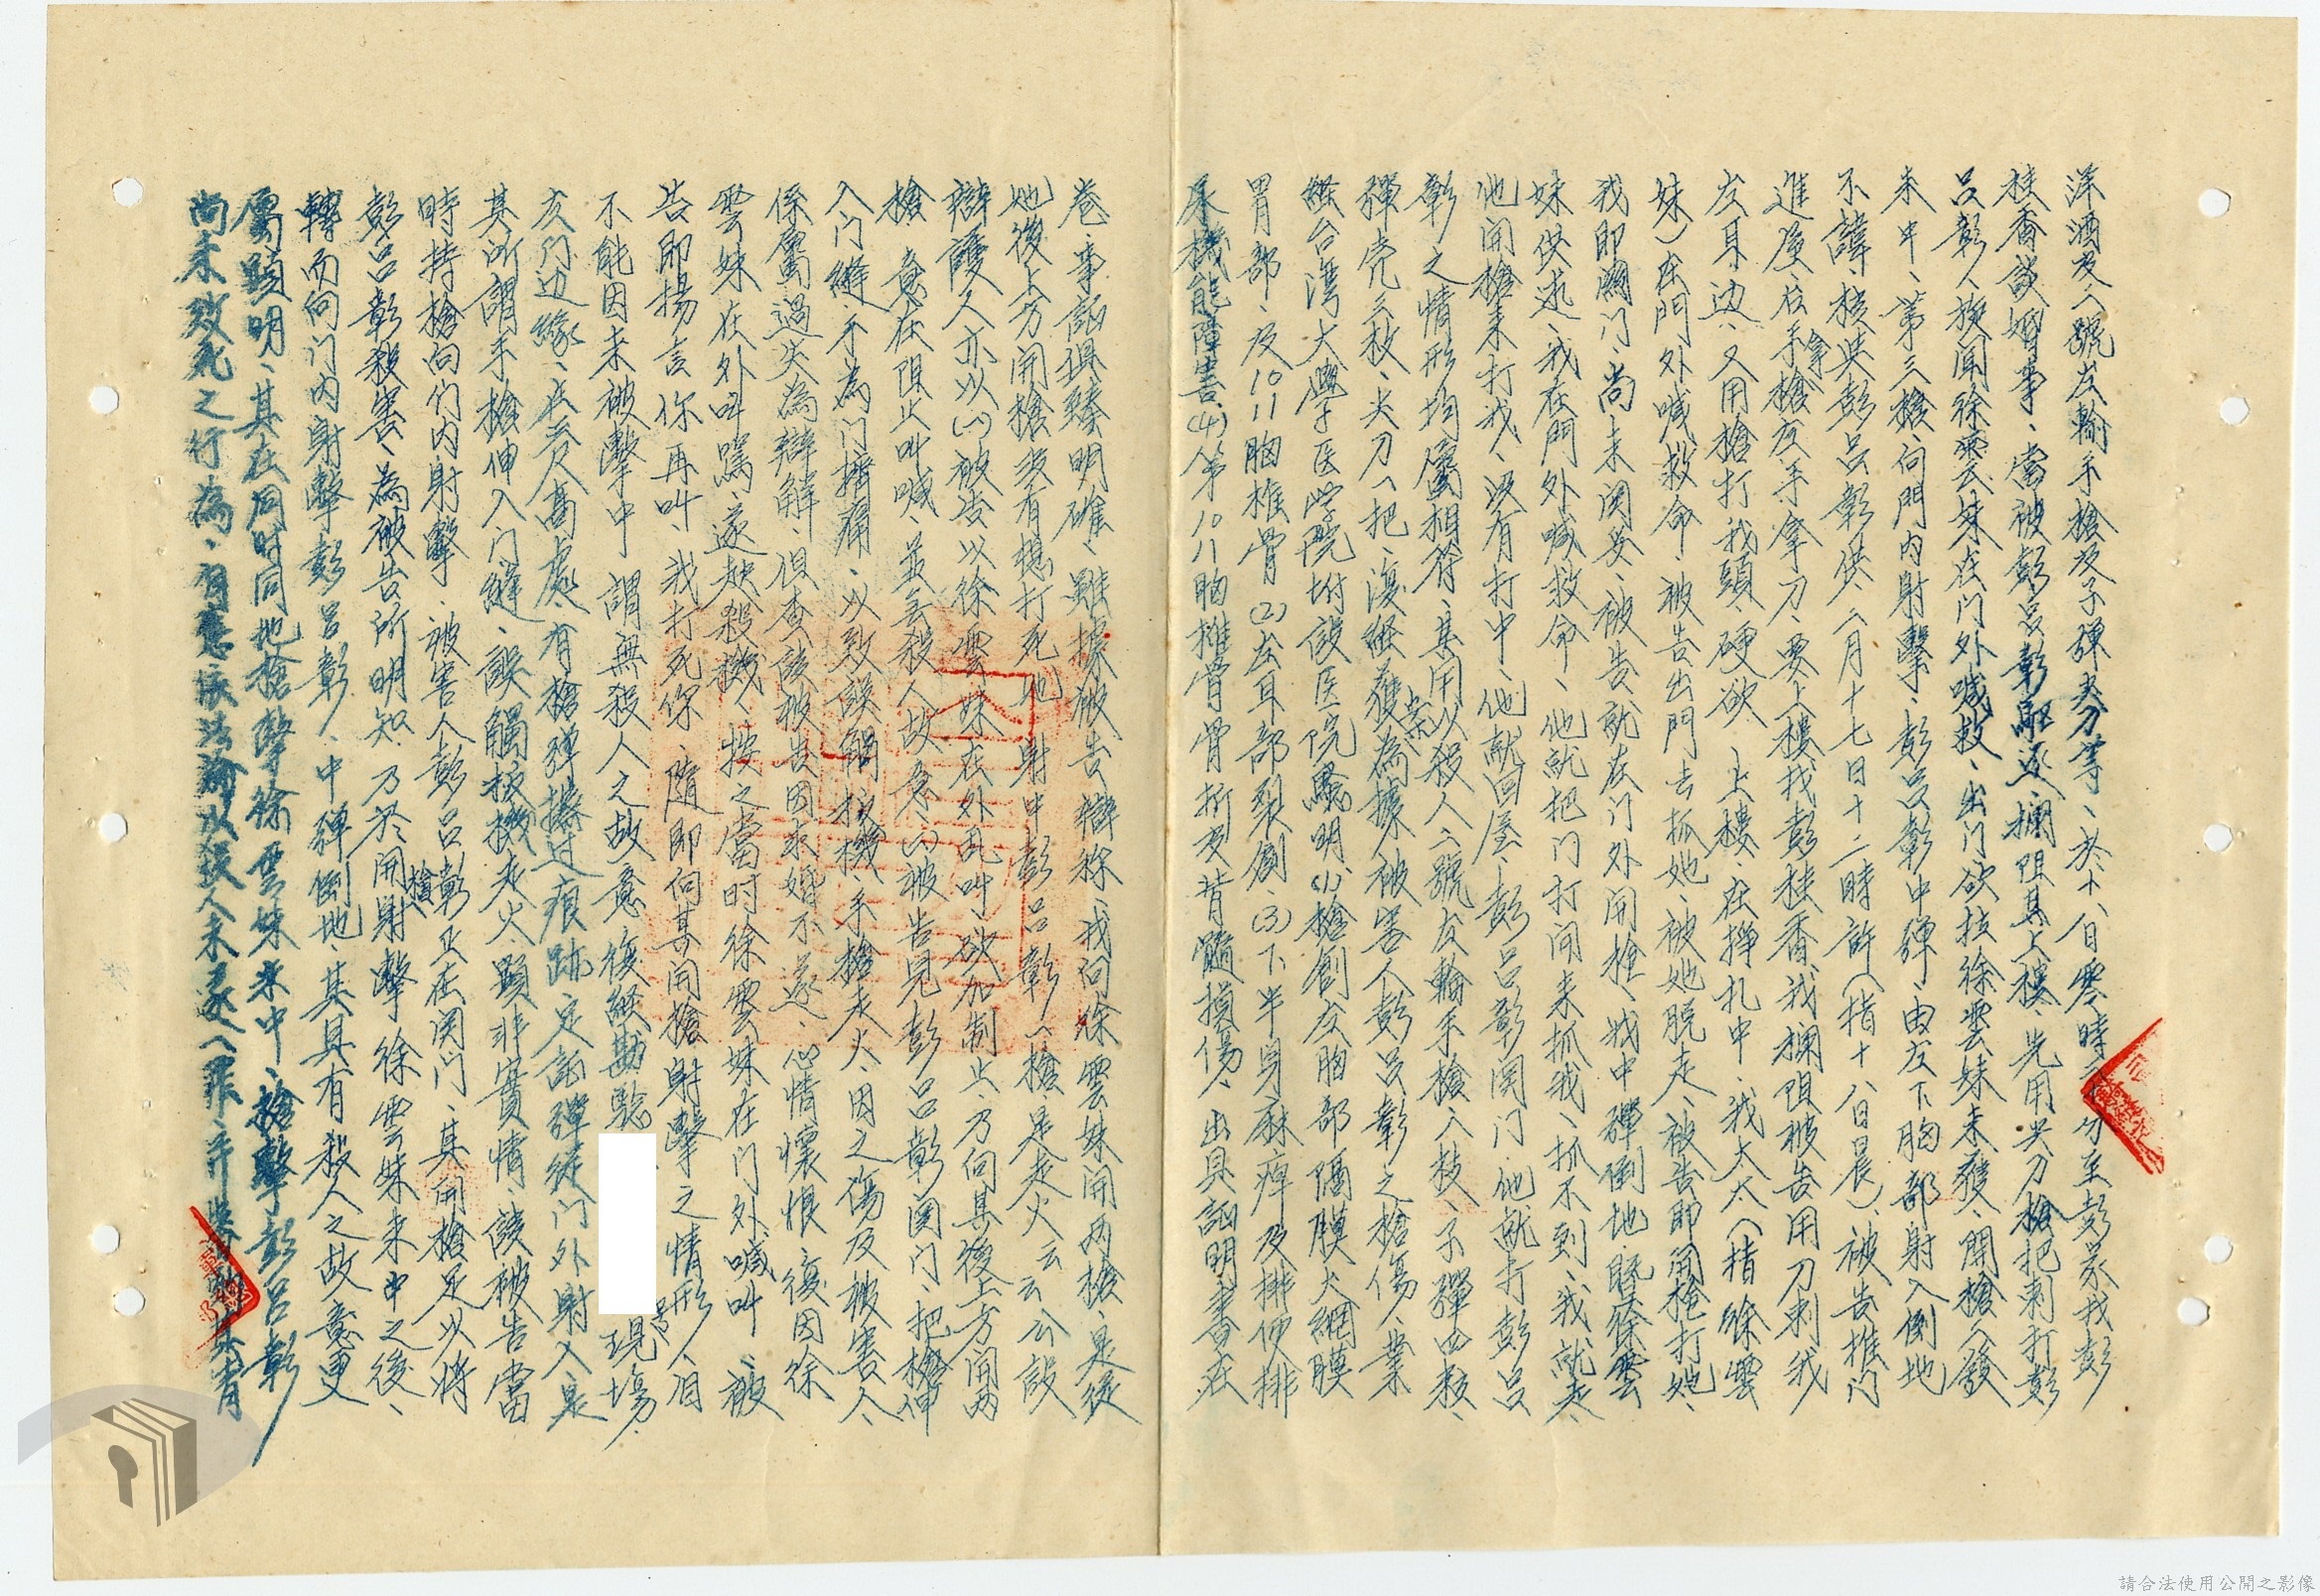 洋酒及八號左輪手槍及子彈尖刀等、於十八日零時 分至彭家找彭
桂香談婚事、當被彭呂彰驅逐攔阻其上樓、先用尖刀槍把刺打彭
呂彰、旋聞徐雲妹在门外喊救、出门欲找徐雲妹未獲、開槍入發
未中、第三槍向門內射擊、彭呂彰中彈、由左下胸部射入倒地
不諱、核與彭呂彰供、二月十七日十二時許(指十八日晨)、被告推门
進屋、右手拿槍左手拿刀、要上樓找彭桂香、我攔阻被告用刀刺我
左耳边、又用槍打我頭、硬欲上樓、在掙扎中、我太太(指徐雲
妹)在門外喊救命、被告出門去抓她、被她脱走、被告即用槍打她、
我即關门、尚未関妥、被告就在门外開槍、我中彈倒地、既徐雲
妹供述、我在門外喊救命、他就把门打開來抓我、抓不到、我就走、
他開槍來打我、沒有打中、他就回屋、彭呂彰関门、他就打彭呂
彰之情形均屬相符、其用以殺人之八號左輪手槍一枝、子彈四枚、
彈壳三枚、尖刀一把、復經獲案為據、被害人彭呂彰之槍傷、業
經台灣大學医学院附設医院驗明(1)槍創左胸部隔膜大網膜
胃部、及10 11胸椎骨(2)左耳部裂創、(3)下半身麻痺及排便排
尿機能障害(4)第10 11胸椎骨骨折及脊髓損傷、出具証明書在
卷、事証俱臻明確、雖據被告辯称、我向徐雲妹開两槍、是從
她後上方開槍沒有想打死她、射中彭呂彰一槍、是走火云云公設
辯護人亦以(一)被告以徐雲妹在外乱叫、欲加制止、乃向其後上方開两
槍意在阻止叫喊、並無殺人故意、(二)被告見彭呂彰関门、把槍伸
入门縫、手為门擠痛、以致誤觸扳機、手槍走火、因之傷及被害人、
係屬過失為辯解、但查該被告因求婚不遂、心情懷恨、復因徐
雲妹在外叫罵、遂起殺機、按之當时徐雲妹在门外喊叫、被
告即揚言你再叫、我打死你、隨即向其開槍射擊之情形、自
不能因未被擊中謂無殺人之故意復經勘驗 號現場、
左门边緣、在齐人高處、有槍彈擦过痕跡、足証彈從门外射入、是
其所謂手槍伸入门縫、誤觸扳機走火、顯非實情、該被告當
時持槍向们内射擊、被害人彭呂彰正在関门、其開槍足以將
彭呂彰殺害、為被告所明知、乃於開槍射擊徐雲妹未中之後、
轉而向门內射擊彭呂彰、中彈倒地、其具有殺人之故意更
屬顯明、其在同时同地槍擊徐雲妹未中、槍擊彭呂彰
尚未致死之行為、 應依法論以殺人未遂一罪、
請合法使用公開之影像